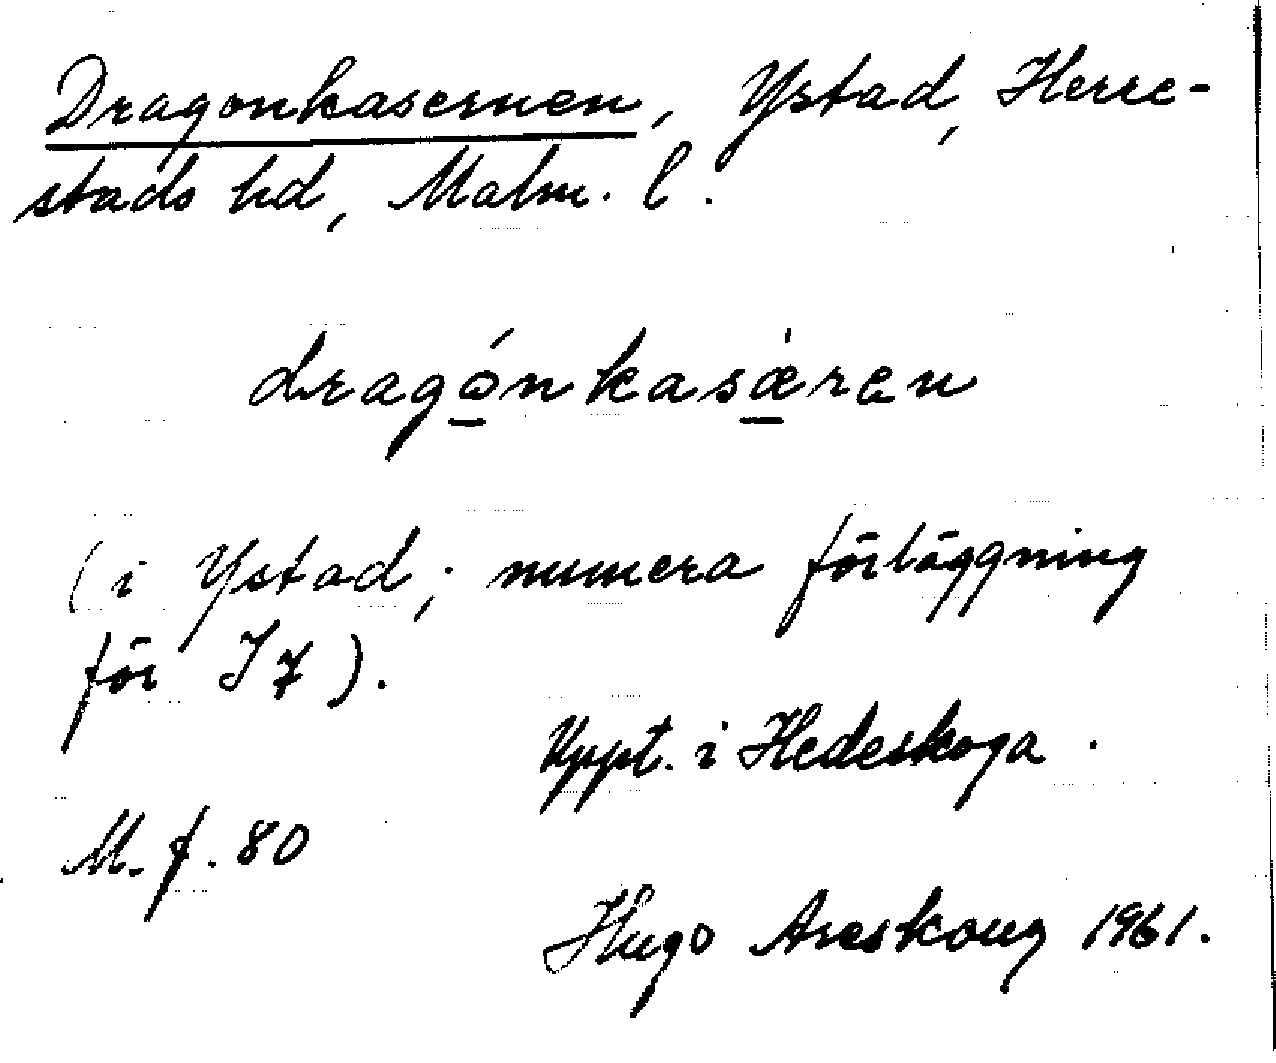 Dragonkasernen, Ystad, Herre-
stads hd, Malm. l.
dragó̱nkasæ̱̍ren
(i Ystad; numera förläggning
för I7).
Uppt. i Hedeskoga.
M. f. 80
Hugo Areskoug 1961.